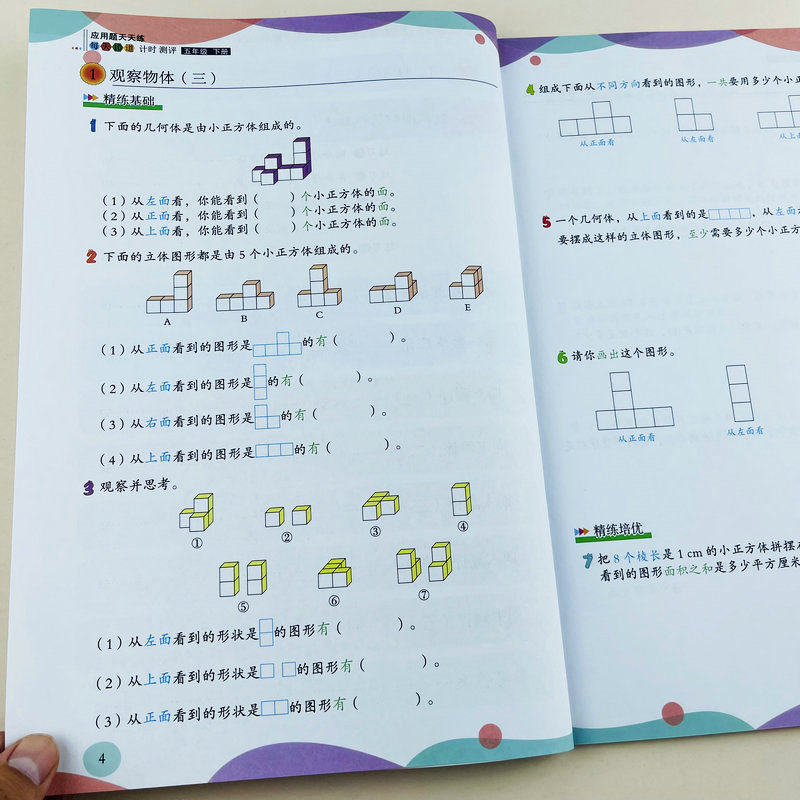 应用题天天练
每天一道 计时 测评 五年级 下册
1 观察物体（三）
精练基础
1 下面的几何体是由小正方体组成的。
（1）从左面看，你能看到（ ）个小正方体的面。
（2）从正面看，你能看到（ ）个小正方体的面。
（3）从上面看，你能看到（ ）个小正方体的面。
2 下面的立体图形都是由5个小正方体组成的。
A B C D E
（1）从正面看到的图形是 的有（ ）。
（2）从左面看到的图形是 的有（ ）。
（3）从右面看到的图形是 的有（ ）。
（4）从上面看到的图形是 的有（ ）。
3 观察并思考。
① ② ③ ④
⑤ ⑥ ⑦
（1）从左面看到的形状是 的图形有（ ）。
（2）从上面看到的形状是 的图形有（ ）。
（3）从正面看到的形状是 的图形有（ ）。
4
4 组成下面从不同方向看到的图形，一共要用多少个小正
从正面看 从左面看 从上
5 一个几何体，从上面看到的是 ，从左面
要摆成这样的立体图形，至少需要多少个小正方
6 请你画出这个图形。
从正面看 从左面看
精练培优
7 把8个棱长是1 cm的小正方体拼摆
看到的图形面积之和是多少平方厘米